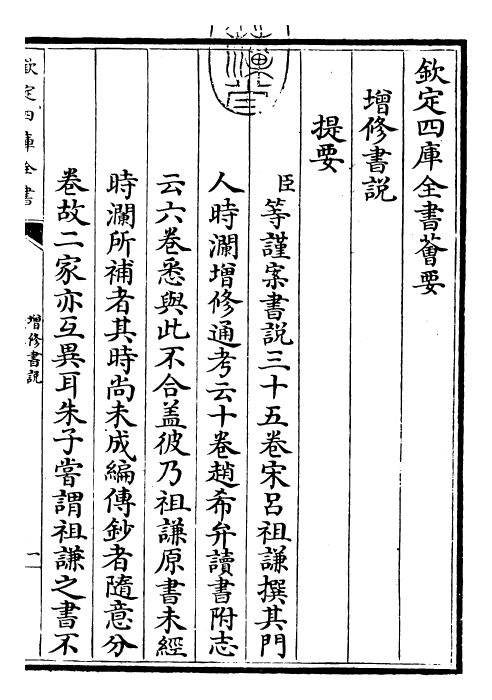 欽定四庫全書薈要
增修書説
提要
臣等謹案書説三十五卷宋呂祖謙撰其門
人時瀾增修通考云十卷趙希弁讀書附志
云六卷悉與此不合盖彼乃祖謙原書未經
時瀾所補者其時尚未成編傳鈔者隨意分
卷故二家亦互異耳朱子嘗謂祖謙之書不
欽定四庫全書
增修書説
一